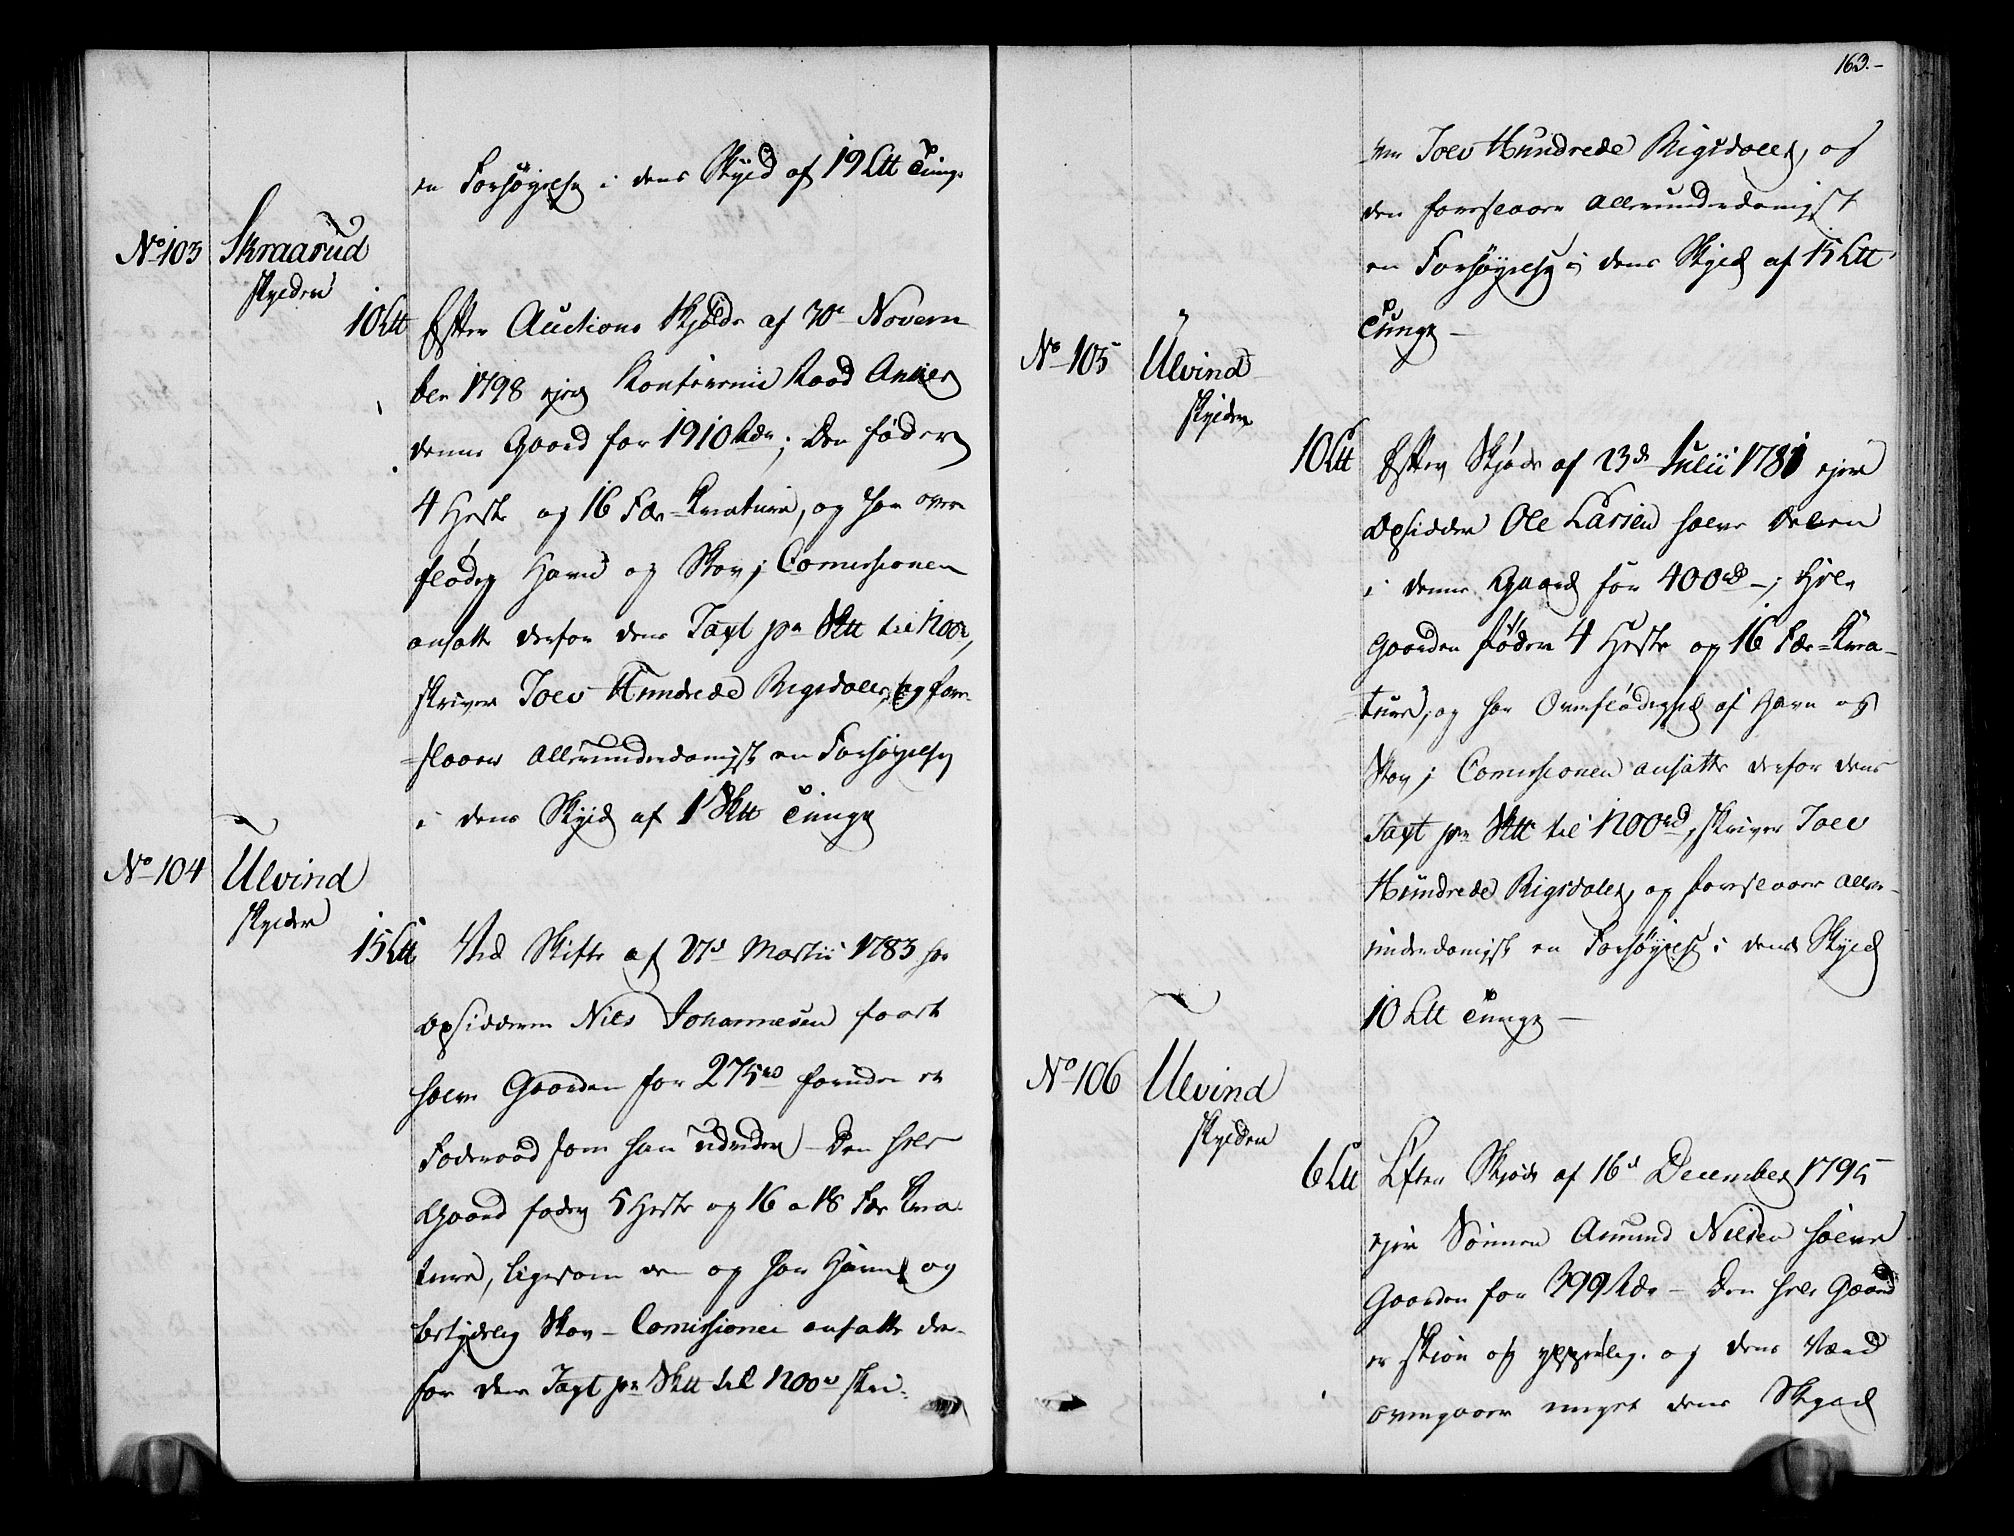 en Forhøyelse i dens Skyld af 19 Ltt Tunge
No 103 Skraarud
skylder
10 Ltt Efter Auctions Skjøde af 30te Novem
ber 1798 ejer Konferents Raad Anker
denne Gaard for 1910 Rdr; Den føder
4 Heste og 16 Fæe-Kreature, og har over
flødig Havn og Skov; Comissionen
ansatte derfor dens Taxt pr Sktt til 1200r,
skriver Tolv Hundrede Rigsdaler, og fore-
=slaaer allerunderdanigst en Forhøyelse
i dens Skyld af 1 Sktt Tunge
No 104 Ulvind
skylder
15 Ltt Ved Skifte af 27d Martii 1783 har
Opsidderen Nils Johannesen faaet
halve Gaarden for 275rd foruden et
Foderaad som han udreder - Den hele
Gaard føder 5 Heste og 16 a 18 Fæe Krea-
ture, ligesom den og har Havn og
betydelig Skov - Comissionen ansatte der-
for dens Taxt pr Sktt til 1200rd skri-
163.-
ver Tolv Hundrede Rigsdaler, og
den foreslaaer allerunderdanigst
en Forhøyelse i dens Skyld af 15 Ltt
Tunge -
No 105 Ulvind
skylder
10 Ltt Efter Skjøde af 23de Julii 1781 ejer
Opsidder Ole Larsen halve Delen
i denne Gaard for 400rd -; Hele
Gaarden føder 4 Heste og 16 Fæe-Krea-
=ture, og har Overflødighed af Havn og
Skov; Comissionen ansatte derfor dens
Taxt pr Sktt til 1200rd, skriver Tolv
Hundrede Rigsdaler, og foreslaaer aller-
underdanigst en Forhøyelse i dens Skyld
10 Ltt Tunge -
No 106 Ulvind
skylder
6 Ltt Efter Skjøde af 16d December 1795
ejer Sønnen Amund Nilsen halve
Gaarden for 399 Rdr - Den hele Gaard
er skiøn og ypperlig, og dens Værd
overgaaer meget dens Skyld